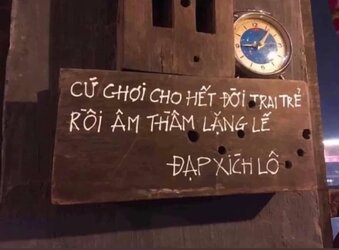 CỨ CHƠI CHO HẾT ĐỜI TRAI TRẺ
RỒI ÂM THẦM LẶNG LẼ
ĐẠP XÍCH LÔ